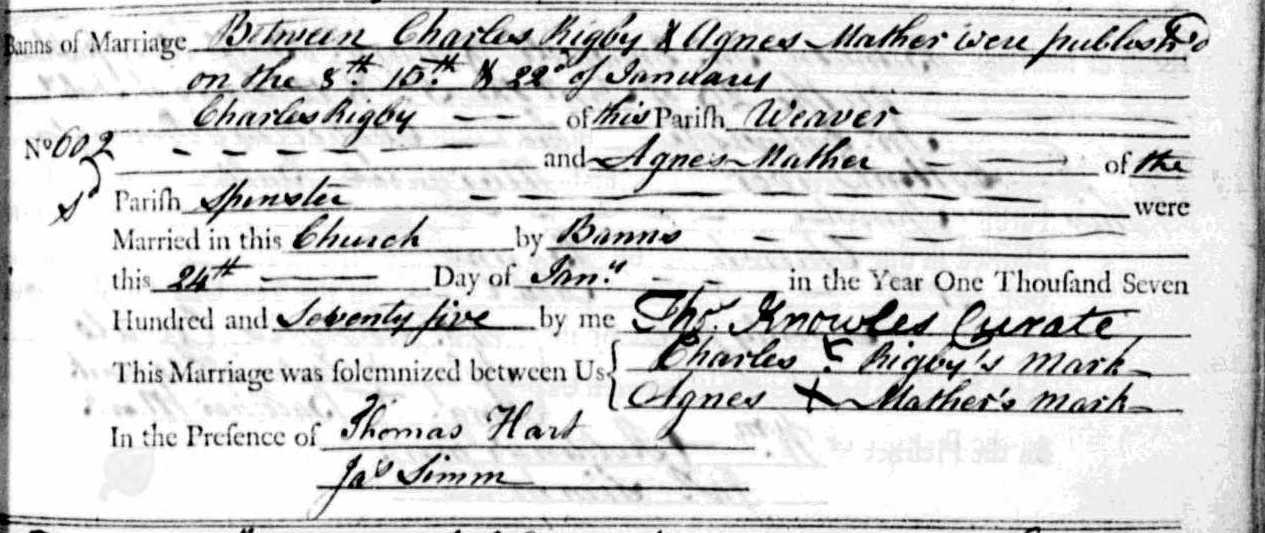 Banns of Marriage Between Charles Rigby & Agnes Mather were publish'd
on the 8th 15th & 22d of January
Charles Rigby — — of this Parish Weaver —
No 602 — — — — — — and Agnes Mather — — of the
Parish Spinster — — — — — — were
Married in this Church by Banns — — — — —
this 24th — Day of Jany — — in the Year One Thousand Seven
Hundred and Seventy five by me Thos. Knowles Curate
This Marriage was solemnized between Us { Charles Rigby's Mark
Agnes X Mather's Mark
In the Presence of Thomas Hart
Jas Simm